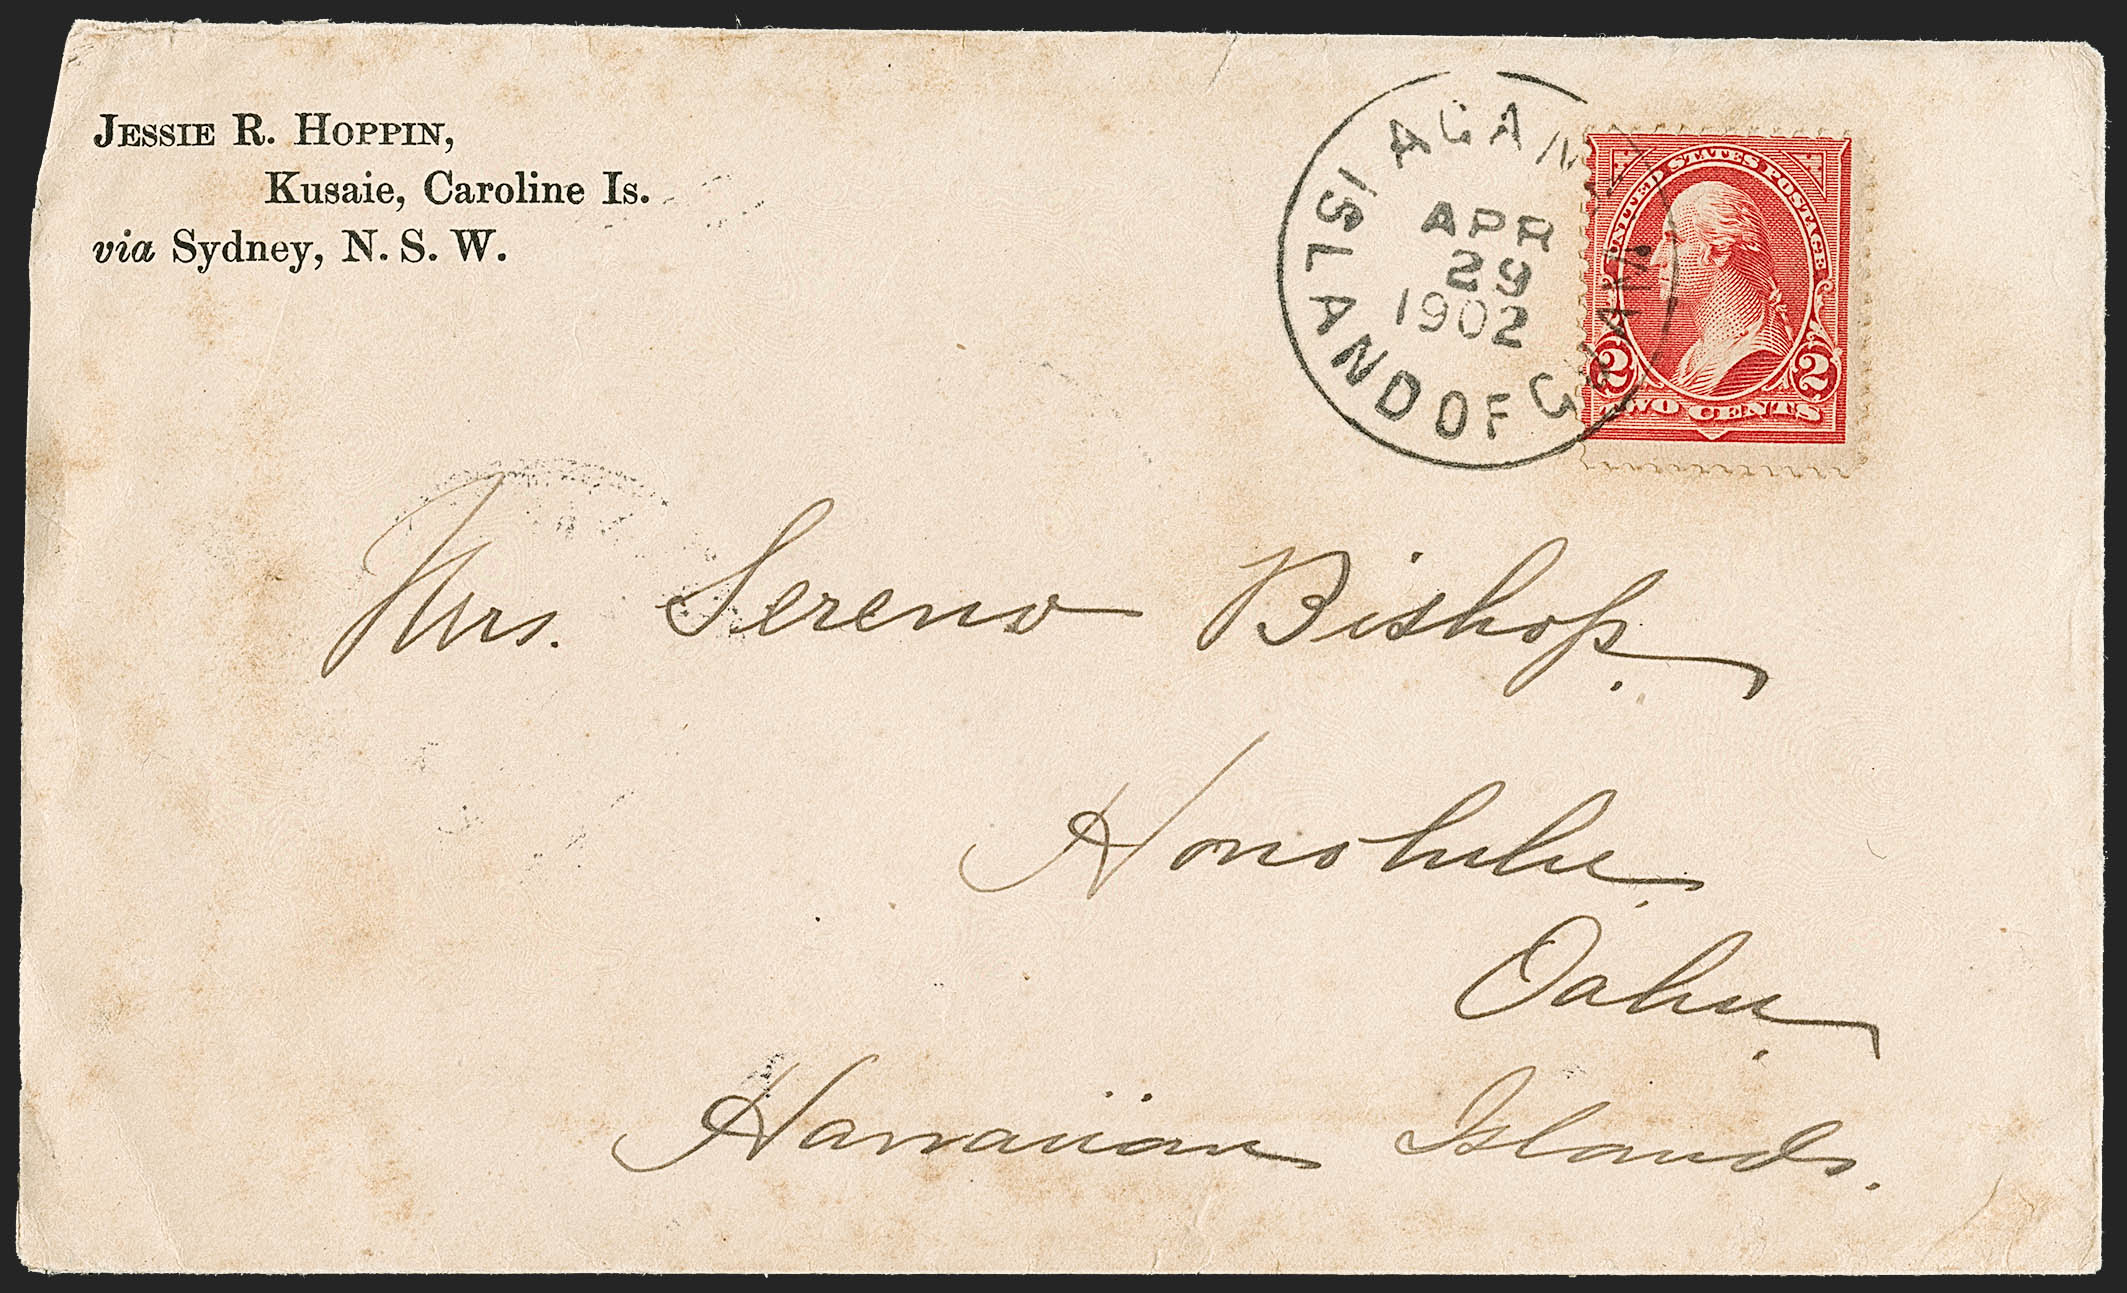 Jessie R. Hoppin,
Kusaie, Caroline Is.
via Sydney, N. S. W.
AGANA
ISLAND OF GUAM
APR
29
1902
UNITED STATES POSTAGE
2 2
TWO CENTS
Mrs. Sereno Bishop.
Honolulu.
Oahu.
Hawaiian Islands.